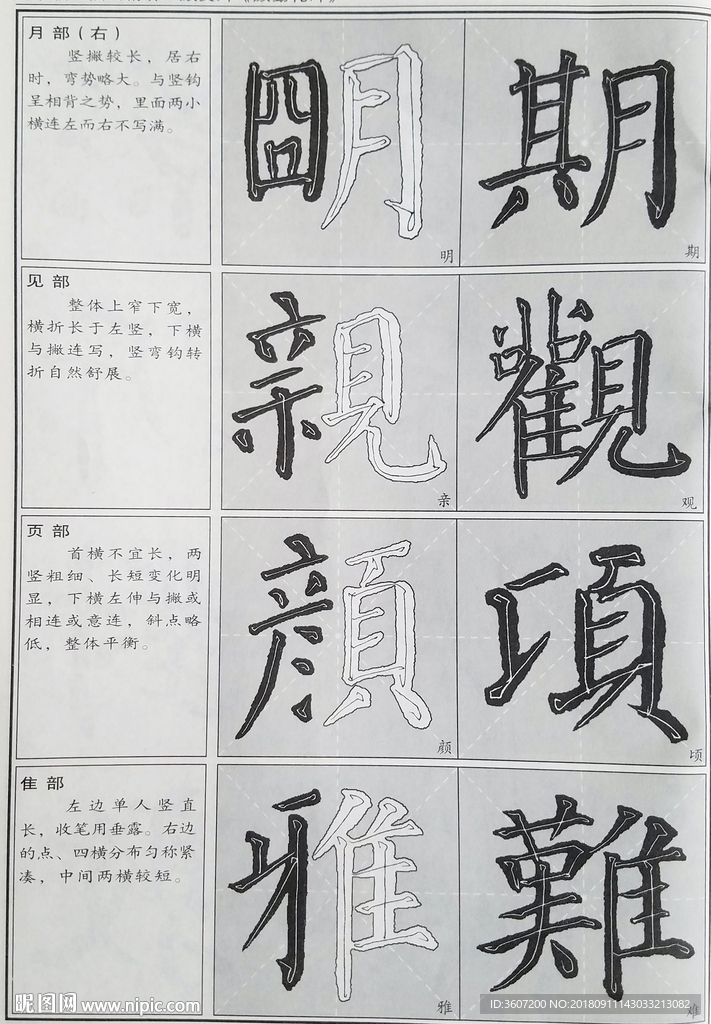 月部（右）
竖撇较长，居右
时，弯势略大。与竖钩
呈相背之势，里面两小
横连左而右不写满。
明
期
明
期
见部
整体上窄下宽，
横折长于左竖，下横
与撇连写，竖弯钩转
折自然舒展。
親
觀
亲
观
页部
首横不宜长，两
竖粗细、长短变化明
显，下横左伸与撇或
相连或意连，斜点略
低，整体平衡。
顏
頃
颜
顷
隹部
左边单人竖直
长，收笔用垂露。右边
的点、四横分布匀称紧
凑，中间两横较短。
雅
難
雅
难
昵图网 www.nipic.com
ID:3607200 NO:20180911143033213082